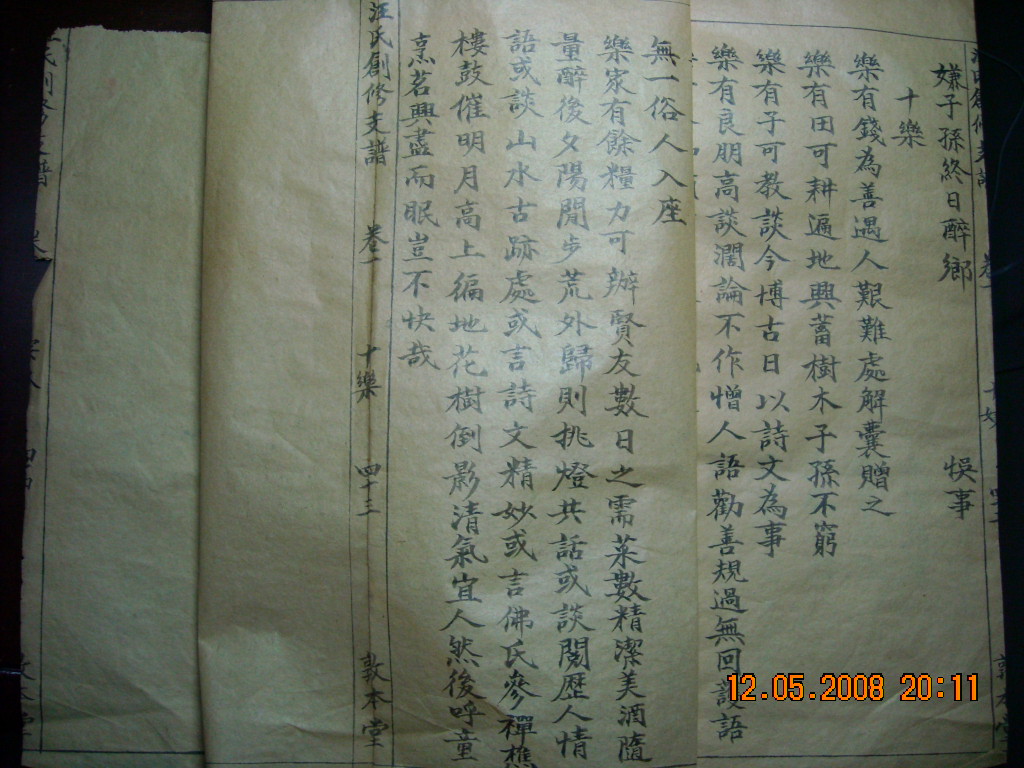 嫌子孫終日醉鄉 悞事
十樂
樂有錢為善遇人艱難處解囊贈之
樂有田可耕遍地興蓄樹木子孫不窮
樂有子可教談今博古日以詩文為事
樂有良朋高談濶論不作憎人語勸善規過無回護語
無一俗人入座
樂家有餘糧力可辦賢友數日之需菜數精潔美酒隨
量醉後夕陽閒步荒外歸則挑燈共話或談閱歷人情
語或談山水古跡處或言詩文精妙或言佛氏參禪樵
樓鼓催明月高上徧地花樹倒影清氣宜人然後呼童
烹茗興盡而眠豈不快哉
汪氏創修支譜 卷一 十樂 四十三 敦本堂
12.05.2008 20:11